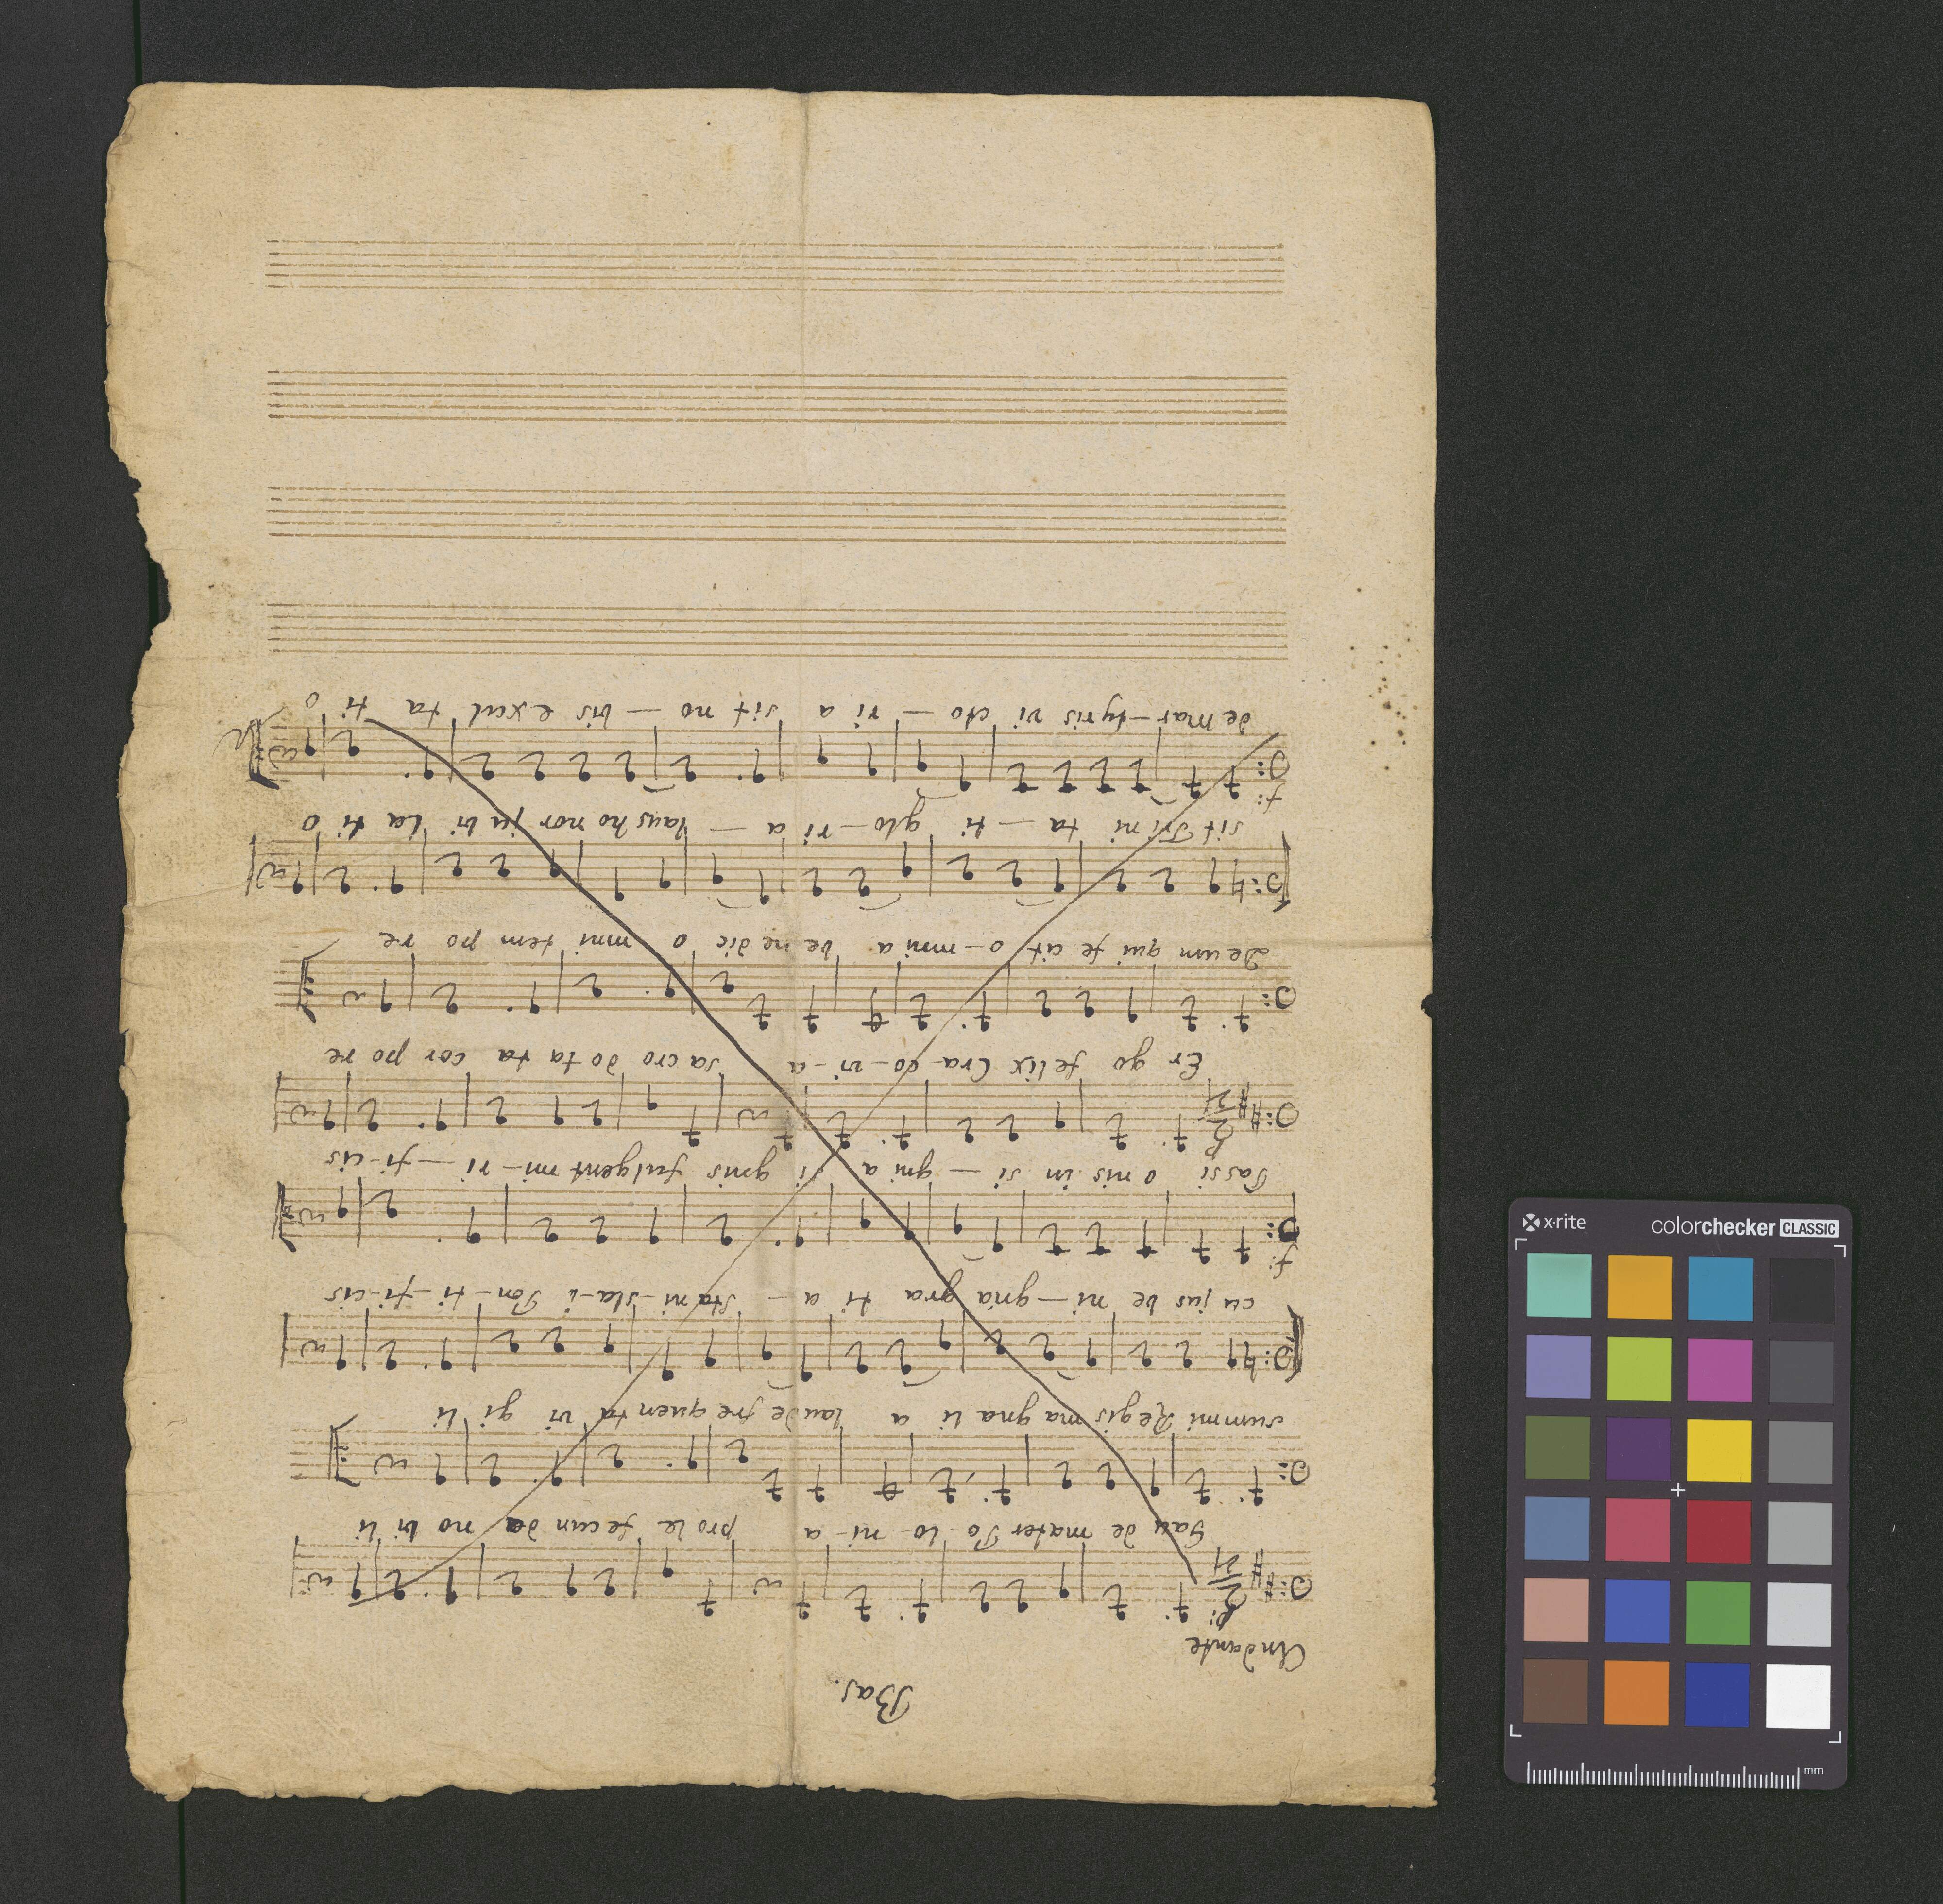 Bas.
Andante
p:
Gau de mater Po-lo-ni-a prole fecun da no bi li
summi Regis magna li a laude frequenta vi gi li
cu jus be ni-gna gra ti a - Sta ni-sla-i Pon-ti-fi-cis
f:
Passi o nis in si-gni a si gnis fulgent mi-ri-fi-cis
p
Er go felix Cra-co-vi-a sa cro do ta ta cor po re
Deum qui fe cit o-mni a be ne dic o mni tem po re
sit Tri ni ta-ti glo-ri a - laus honor ju bi la ti o
f:
de Mar-tyris vi cto-ri a sit no-bis exul ta ti o
x·rite
colorchecker CLASSIC
mm